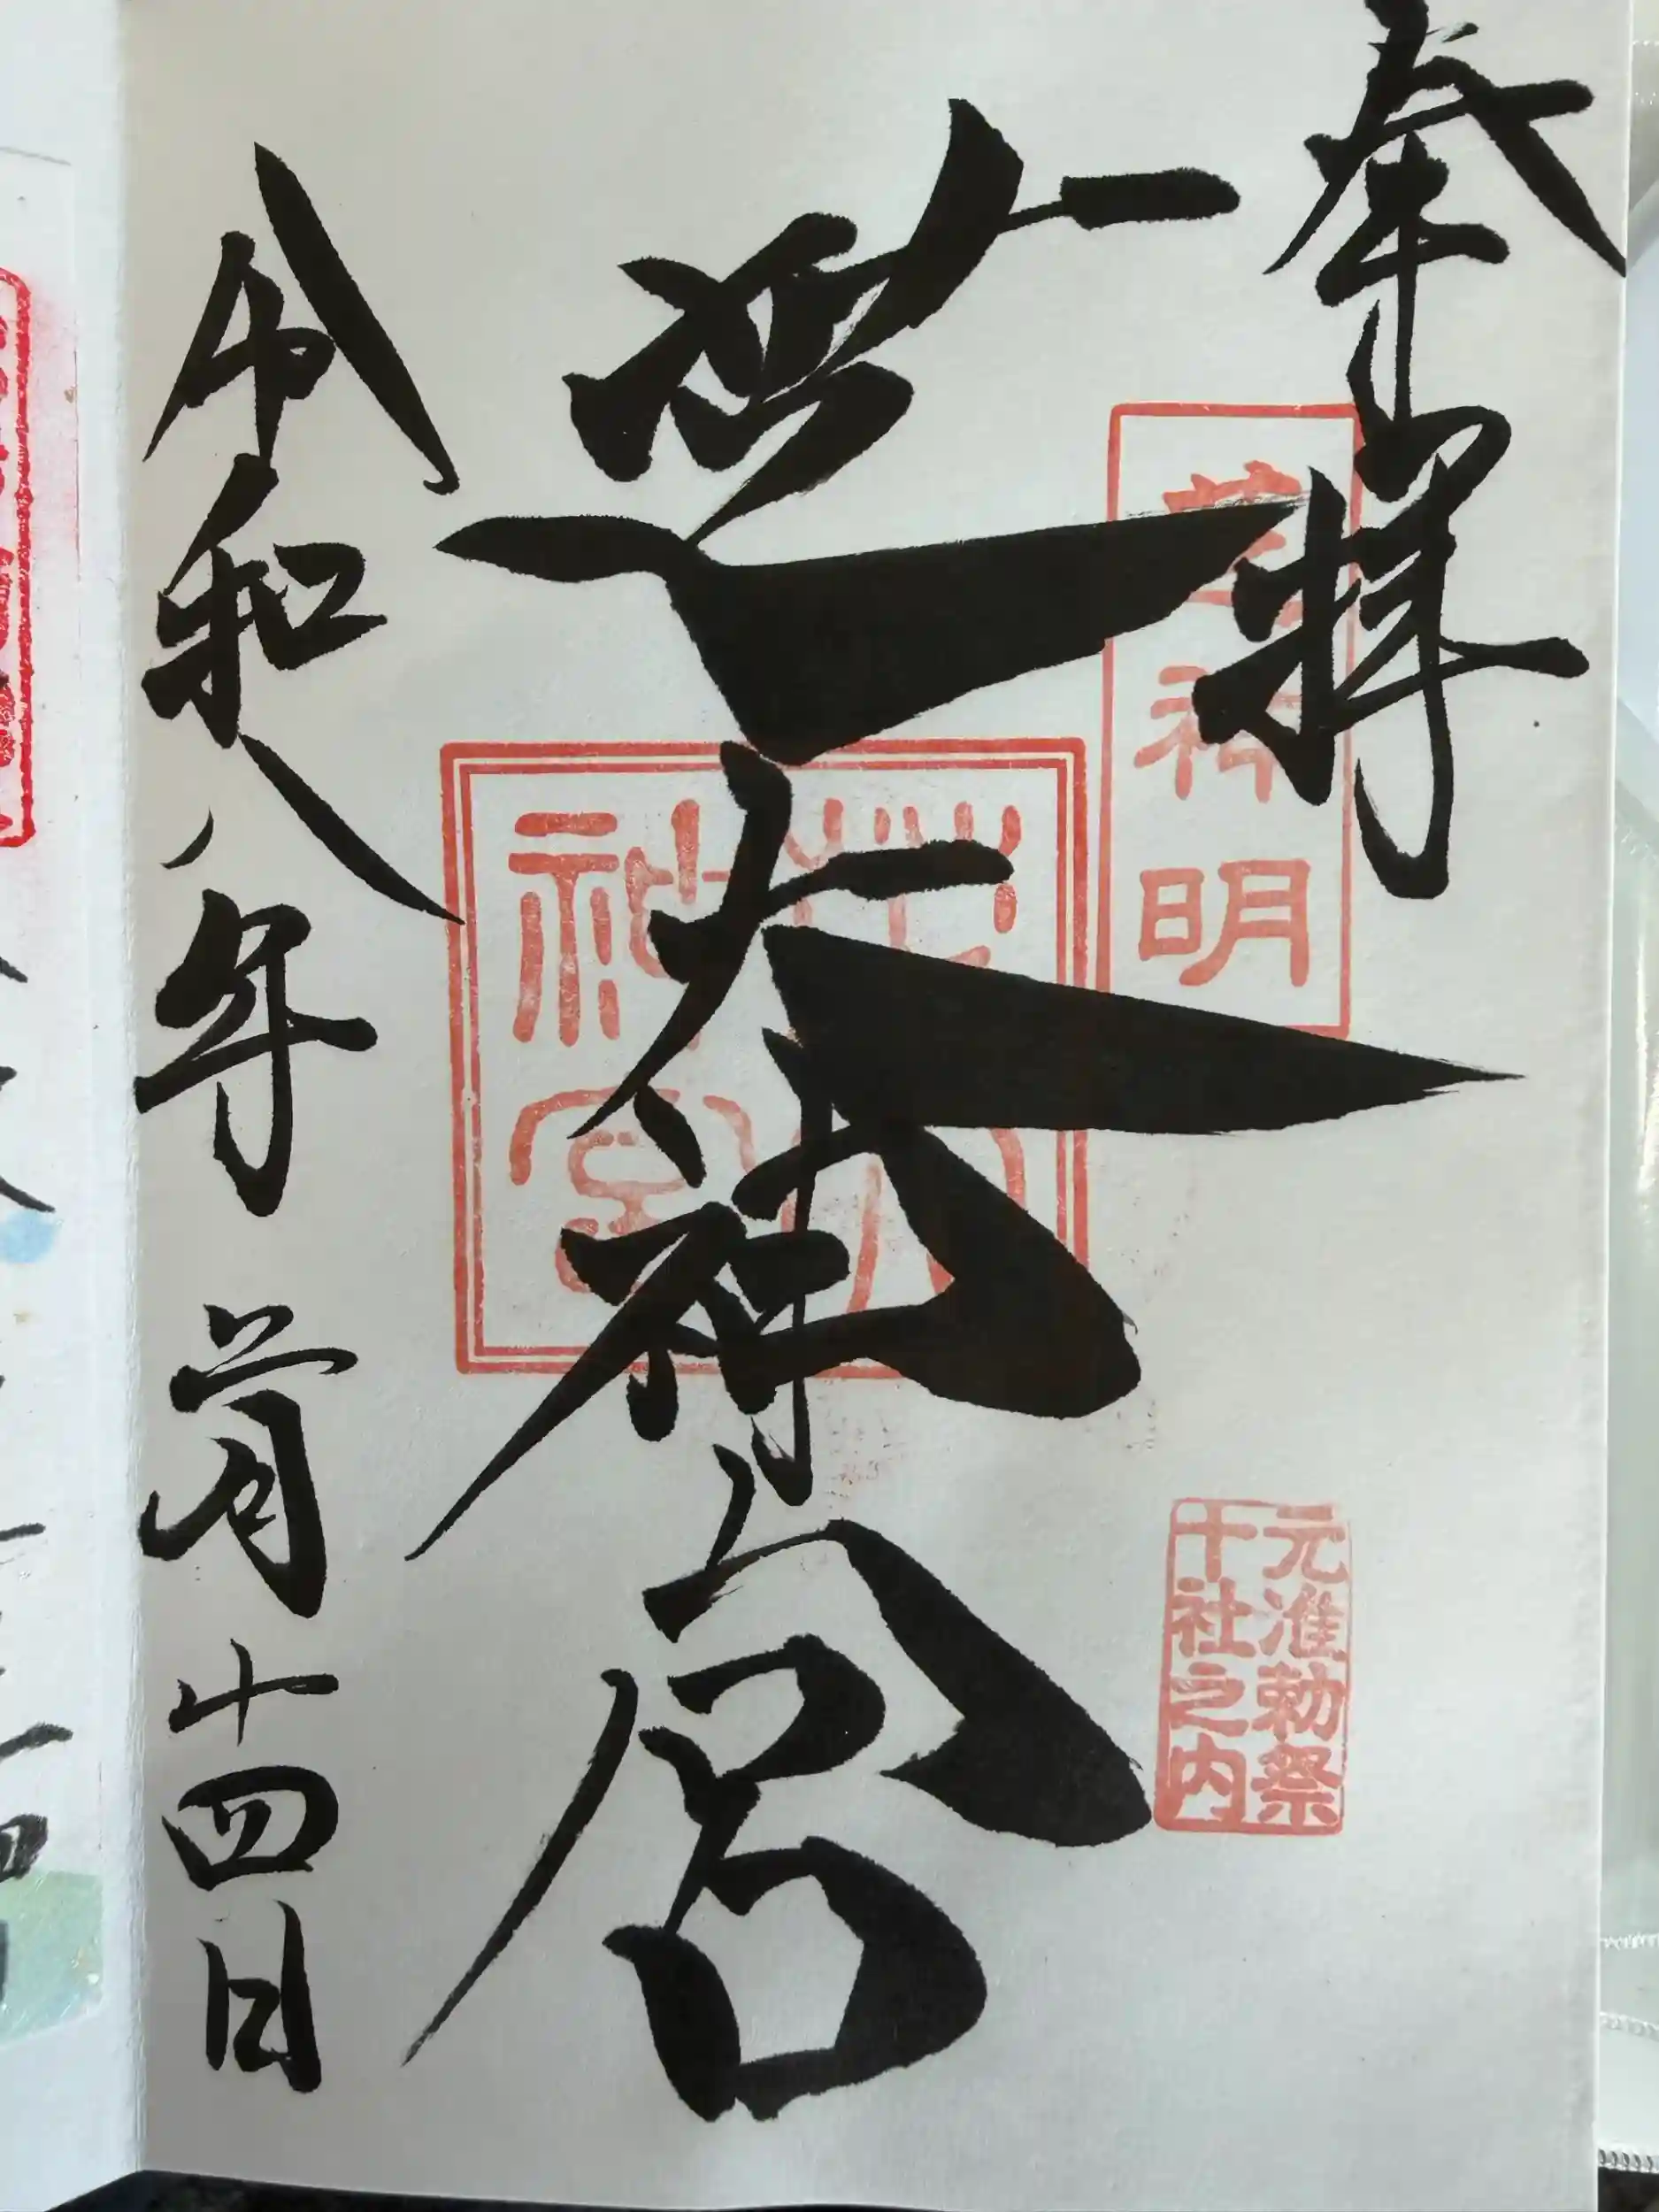 奉拝
芝神明
芝大神宮
芝大神宮
元准勅祭
十社之内
令和八年 二月十四日